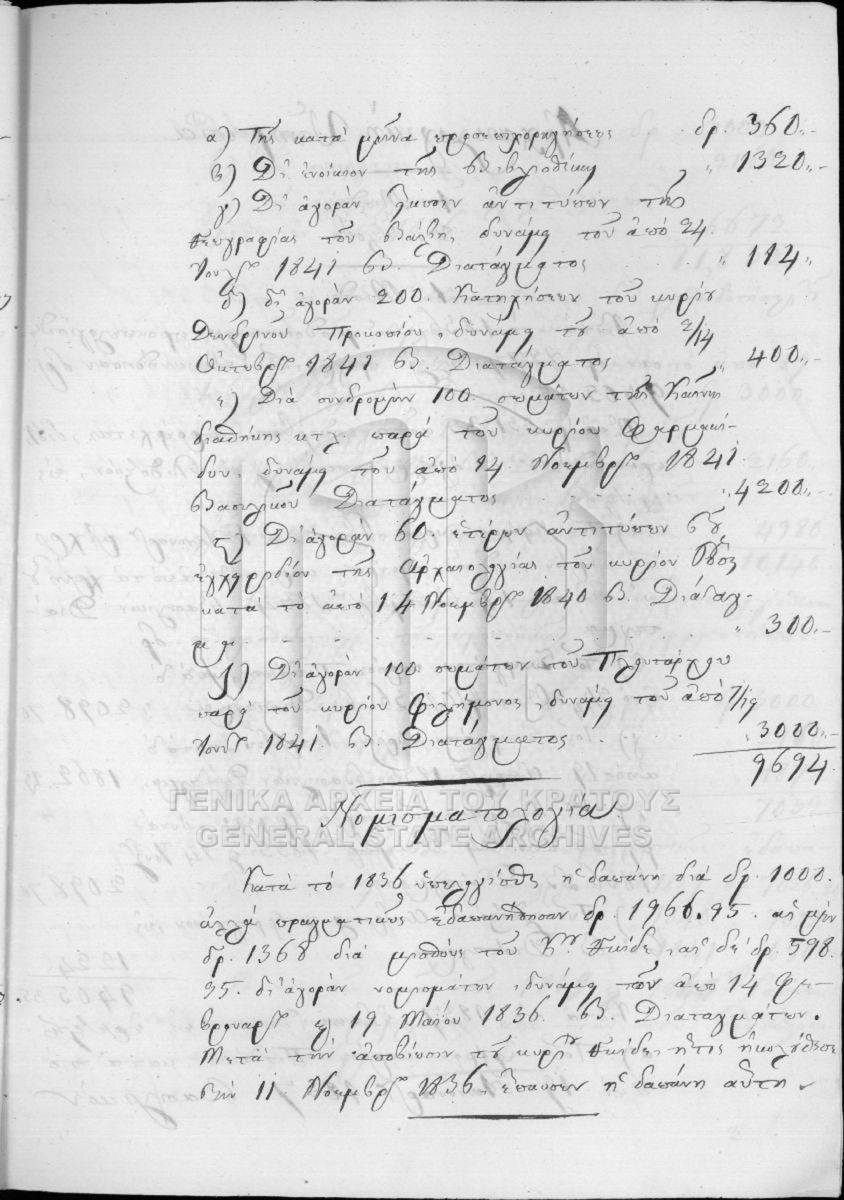 α) Τῆς κατὰ μῆνα προσεπιχορηγήσεως δρ. 360.-
β) Δι' ἐνοίκιον τῆς βιβλιοθήκης " 1320.-
γ) Δι' ἀγορὰν εἴκοσιν ἀντιτύπων τῆς
Γεωγραφίας τοῦ Βάλβη, δυνάμει τοῦ ἀπὸ 24
Ἰουλ. 1841 Β. Διατάγματος " 114 "
δ) δι' ἀγορὰν 200. Κατηχήσεων τοῦ κυρίου
Δενδρινοῦ Προκοπίου, δυνάμει τοῦ ἀπὸ 2/14
Ὀκτωβρ. 1841 Β. Διατάγματος " 400.-
ε) Διὰ συνδρομὴν 100. σωμάτων τῆς Καινῆς
διαθήκης κτλ. παρὰ τοῦ κυρίου Φαρμακί-
δου, δυνάμει τοῦ ἀπὸ 14 Νοεμβρ. 1841
Βασιλικοῦ Διατάγματος " 4200.-
ς) Δι' ἀγορὰν 60. ἑτέρων ἀντιτύπων τοῦ
ἐγχειριδίου τῆς Ἀρχαιολογίας τοῦ κυρίου Ῥὼς
κατὰ τὸ ἀπὸ 14 Νοεμβρ. 1840 Β. Διάταγ-
μα " 300.-
ζ) Δι' ἀγορὰν 100. σωμάτων τοῦ Πλουτάρχου
παρὰ τοῦ κυρίου Φιλήμονος, δυνάμει τοῦ ἀπὸ 7/19
1841. Β. Διατάγματος " 3000.-
9694
ΓΕΝΙΚΑ ΑΡΧΕΙΑ ΤΟΥ ΚΡΑΤΟΥΣ
Νομισματολογία.
GENERAL STATE ARCHIVES
Κατὰ τὸ 1836 ὑπελογίσθη ἡ δαπάνη διὰ δρ. 1000.
ἀλλὰ πραγματικῶς ἐδαπανήθησαν δρ. 1966.95. αἱ μὲν
δρ. 1368 διὰ μισθοὺς τοῦ Κυ. αἱ δὲ δρ. 598.
95. δι' ἀγορὰν νομισμάτων, δυνάμει τῶν ἀπὸ 14 Φε-
βρουαρ. καὶ 19 Μαΐου 1836. Β. Διαταγμάτων.
Μετὰ τὴν ἀποβίωσιν τοῦ κυρίου ἥτις ἠκολούθησε
τὴν 11 Νοεμβρ. 1836, ἔπαυσεν ἡ δαπάνη αὕτη.